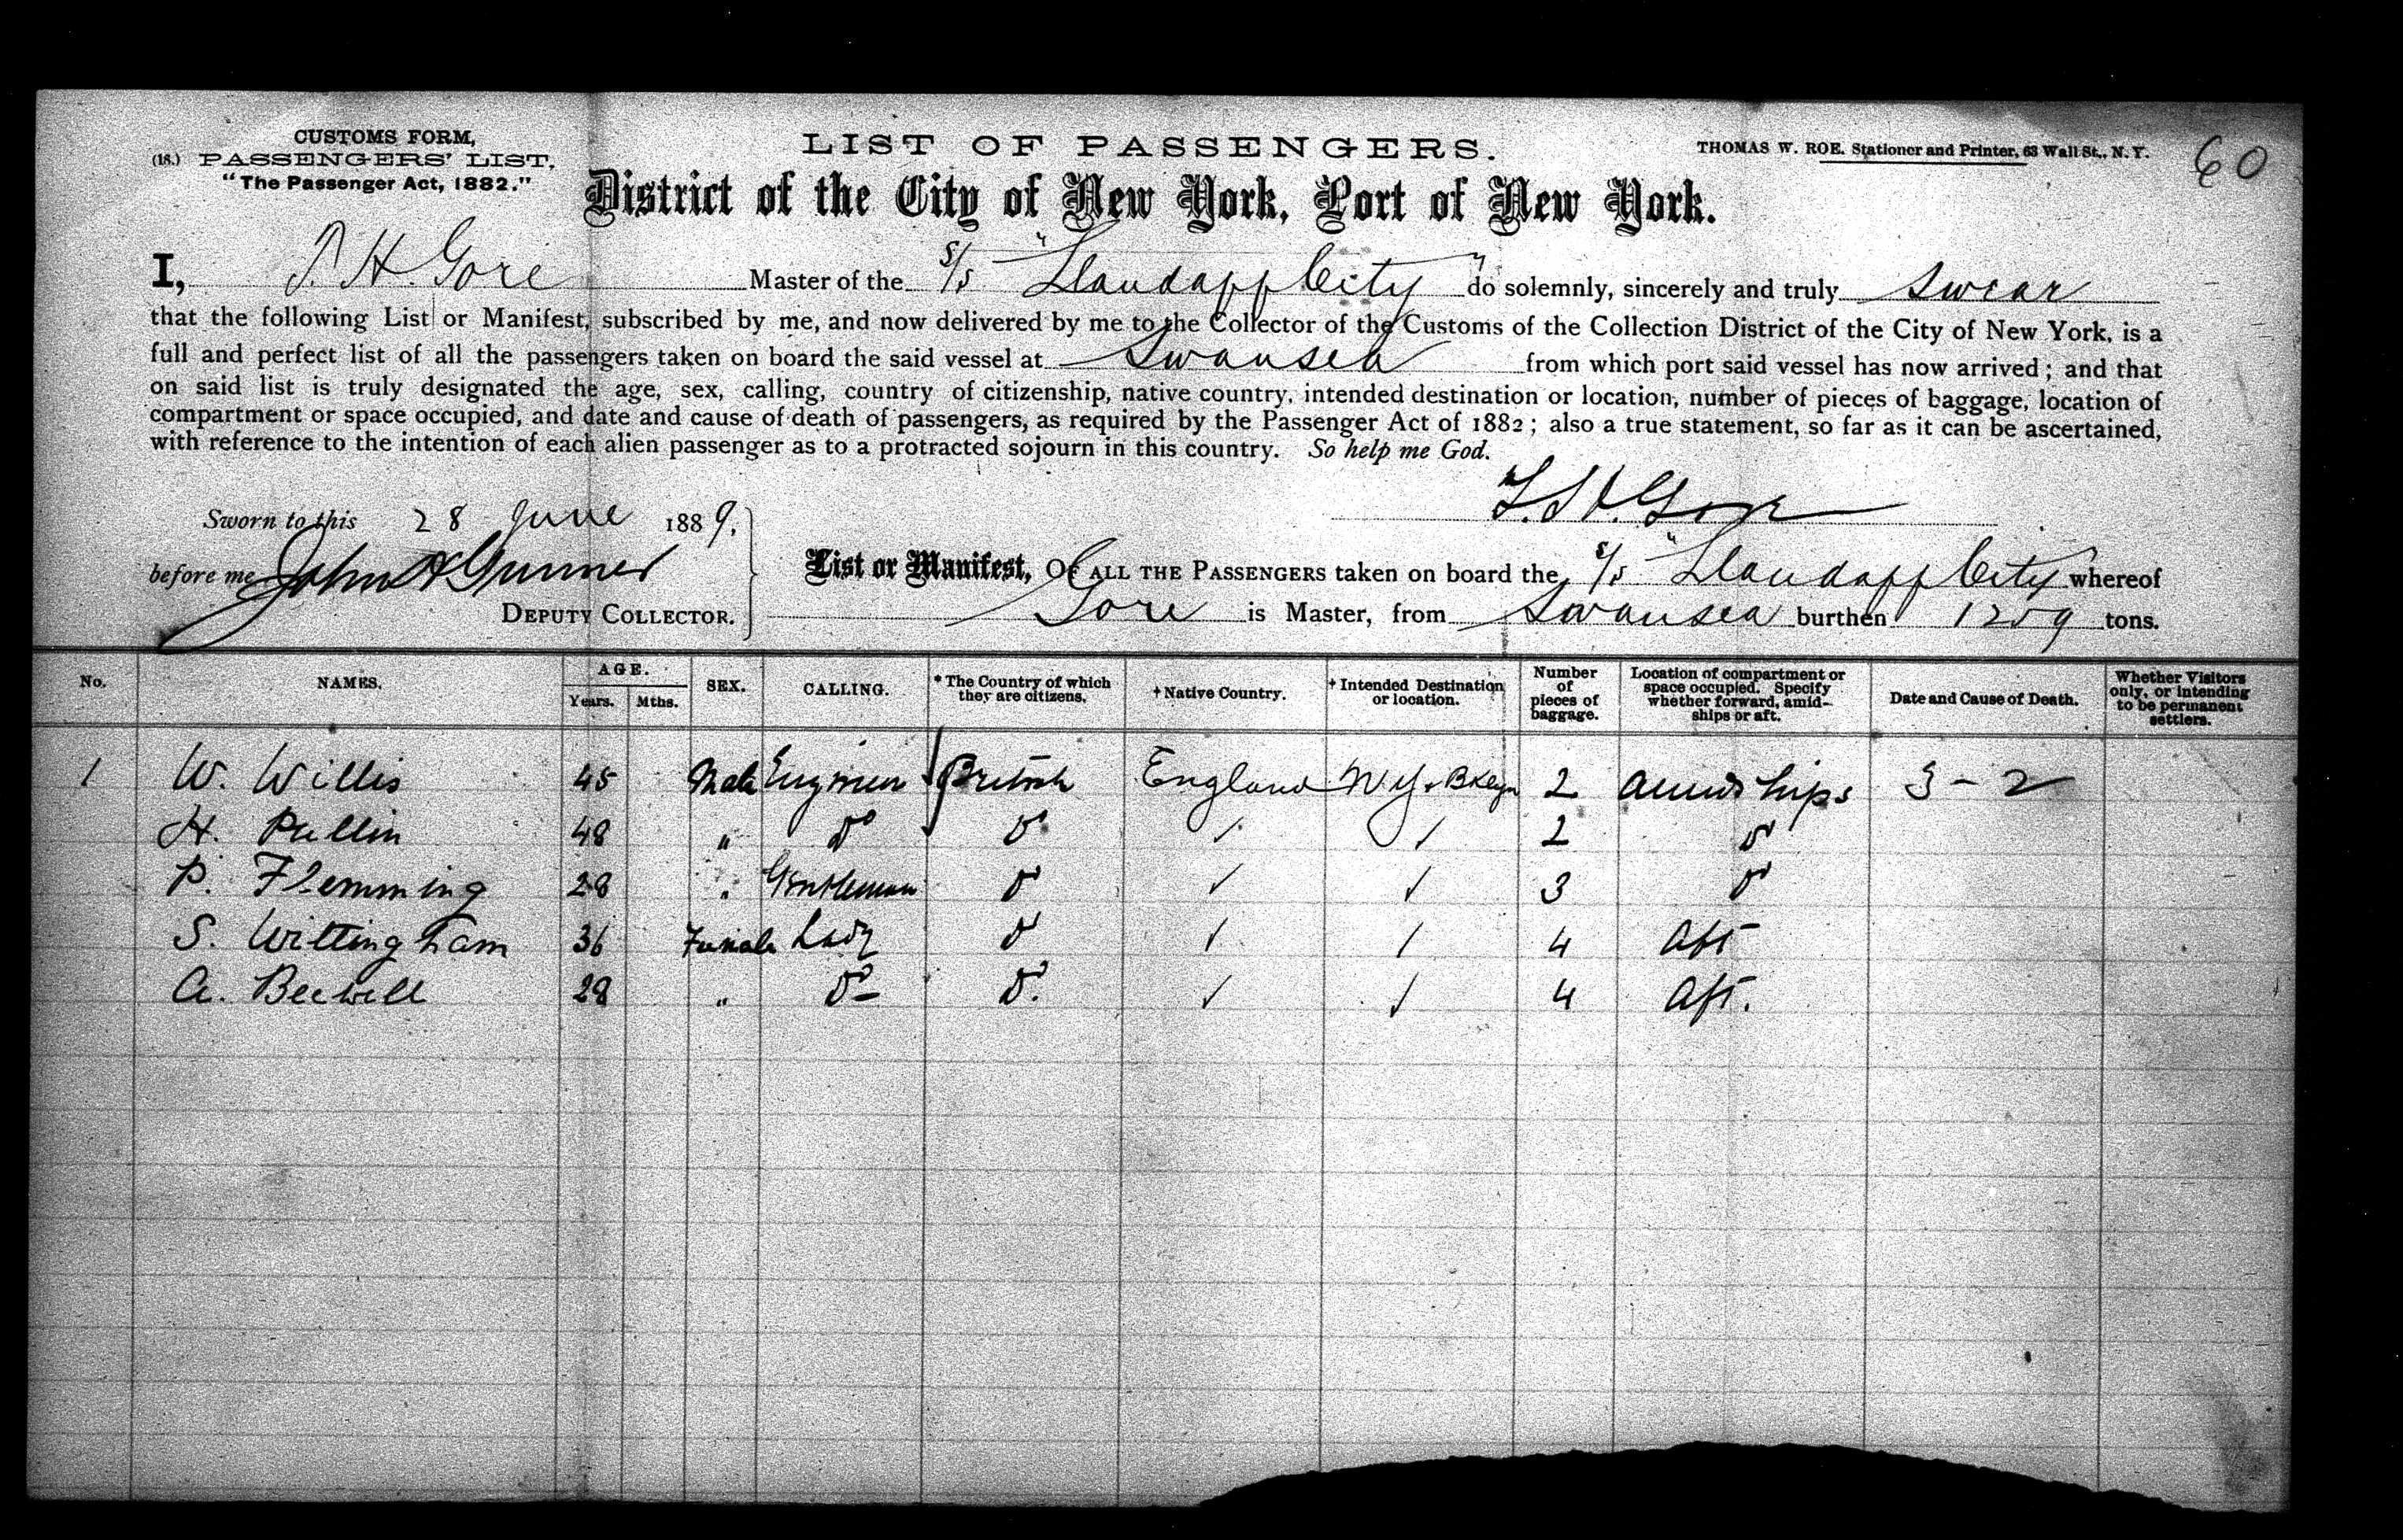 CUSTOMS FORM,
(18.) PASSENGERS' LIST.
"The Passenger Act, 1882."
LIST OF PASSENGERS.
THOMAS W. ROE. Stationer and Printer, 63 Wall St., N.Y.
60
District of the City of New York, Port of New York.
I, T. H. Gore Master of the S/S "Llandaff City" do solemnly, sincerely and truly swear
that the following List or Manifest, subscribed by me, and now delivered by me to the Collector of the Customs of the Collection District of the City of New York, is a
full and perfect list of all the passengers taken on board the said vessel at Swansea from which port said vessel has now arrived; and that
on said list is truly designated the age, sex, calling, country of citizenship, native country, intended destination or location, number of pieces of baggage, location of
compartment or space occupied, and date and cause of death of passengers, as required by the Passenger Act of 1882; also a true statement, so far as it can be ascertained,
with reference to the intention of each alien passenger as to a protracted sojourn in this country. So help me God.
T. H. Gore
Sworn to this 28 June 1889,
before me John A Gunner
DEPUTY COLLECTOR.
List or Manifest, OF ALL THE PASSENGERS taken on board the S/S "Llandaff City whereof
Gore is Master, from Swansea burthen 1259 tons.
No. NAMES. AGE. Years. Mths. SEX. CALLING. * The Country of which they are citizens. † Native Country. † Intended Destination or location. Number of pieces of baggage. Location of compartment or space occupied. Specify whether forward, amid-ships or aft. Date and Cause of Death. Whether Visitors only, or intending to be permanent settlers.
1 W. Willis 45 Male British England N Y. Bklyn 2 Amidships 3-2
H. Pullin 48 " Do Do ✓ ✓ 2 Do
P. Flemming 28 " Gentleman Do ✓ ✓ 3 Do
S. Wittingham 36 Female Lady Do ✓ ✓ 4 Aft
A. Beewell 28 " Do Do. ✓ ✓ 4 Aft.